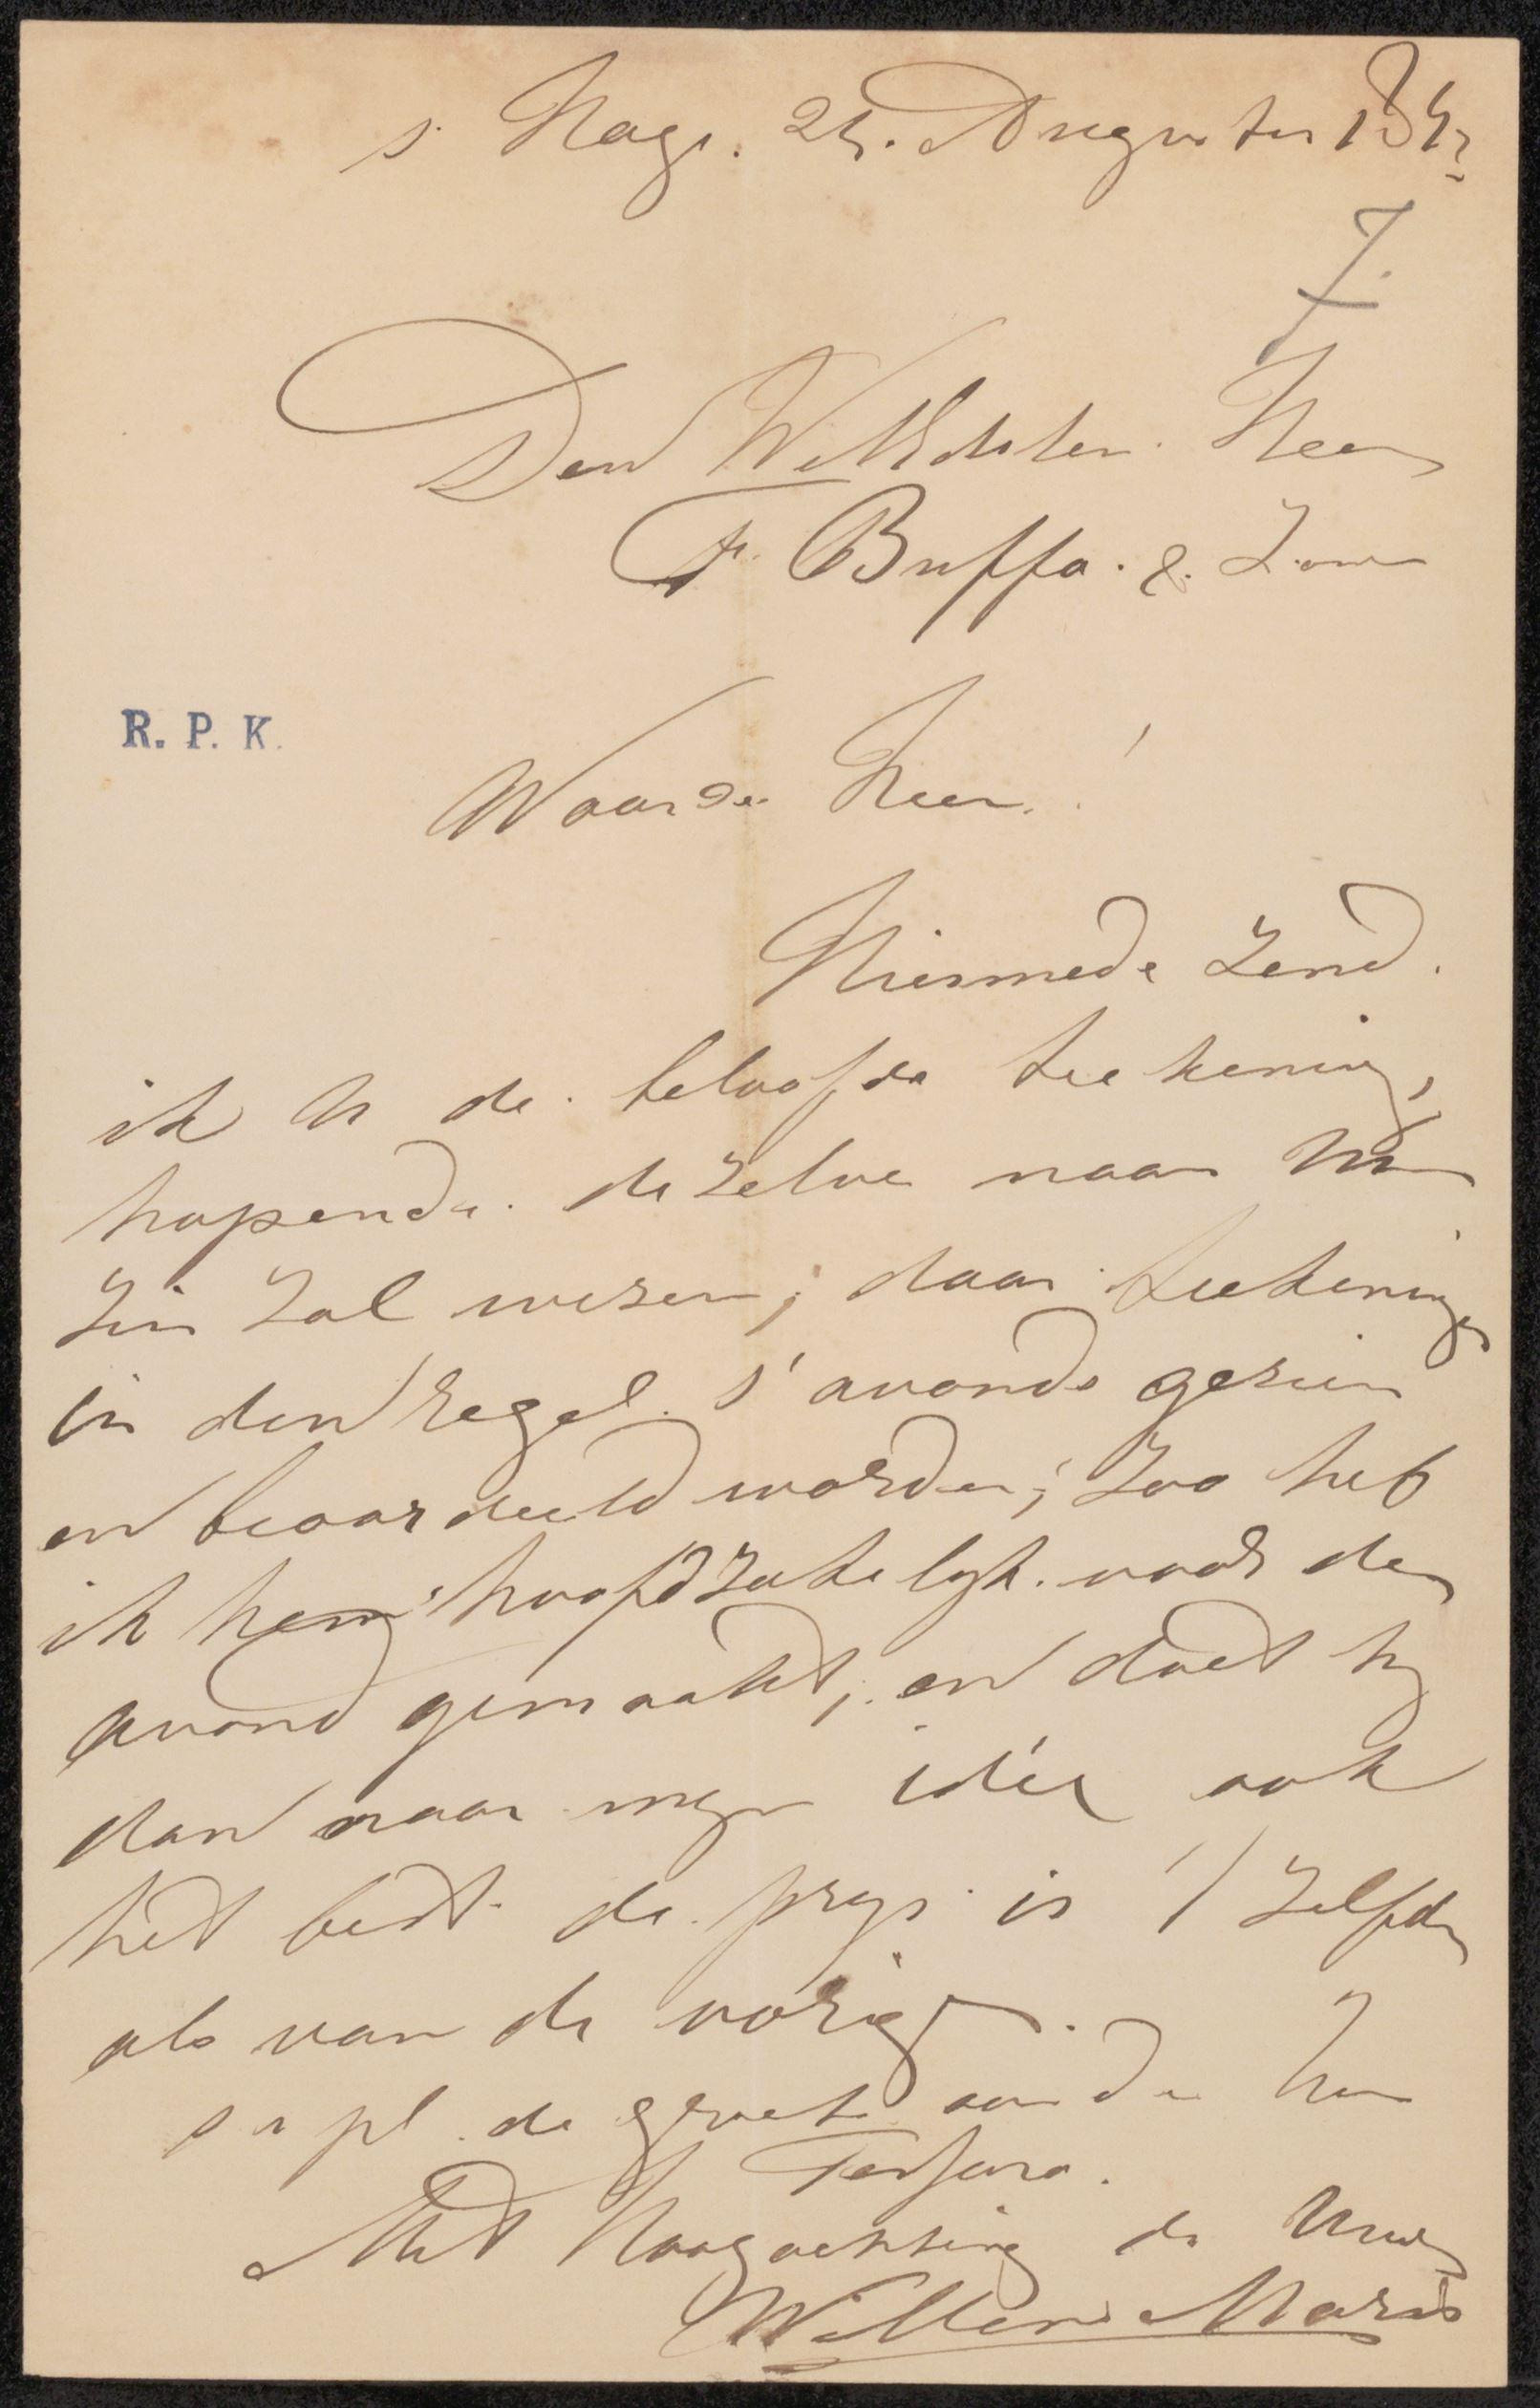 s' Hage. 24. Augustus 18
7.
Den WelEdelen Heer
F. Buffa. & Zonen
R. P. K.
Waarde Heer!
Hiermede Zend.
ik U de beloofde teekening,
hopende. dezelve naar Uw
Zin Zal wezen; daar teekeningen
in den regel. s'avonds gezien
en beoordeeld worden; Zoo heb
ik hem hoofdzakelyk. voor den
avond gemaakt; en doet hy
dan naar myn idée ook
het best. de prys is 't Zelfde
als van de vorige.
s v pl. de groete aan den heer
Met Hoogachting de Uwe
Willem Maris